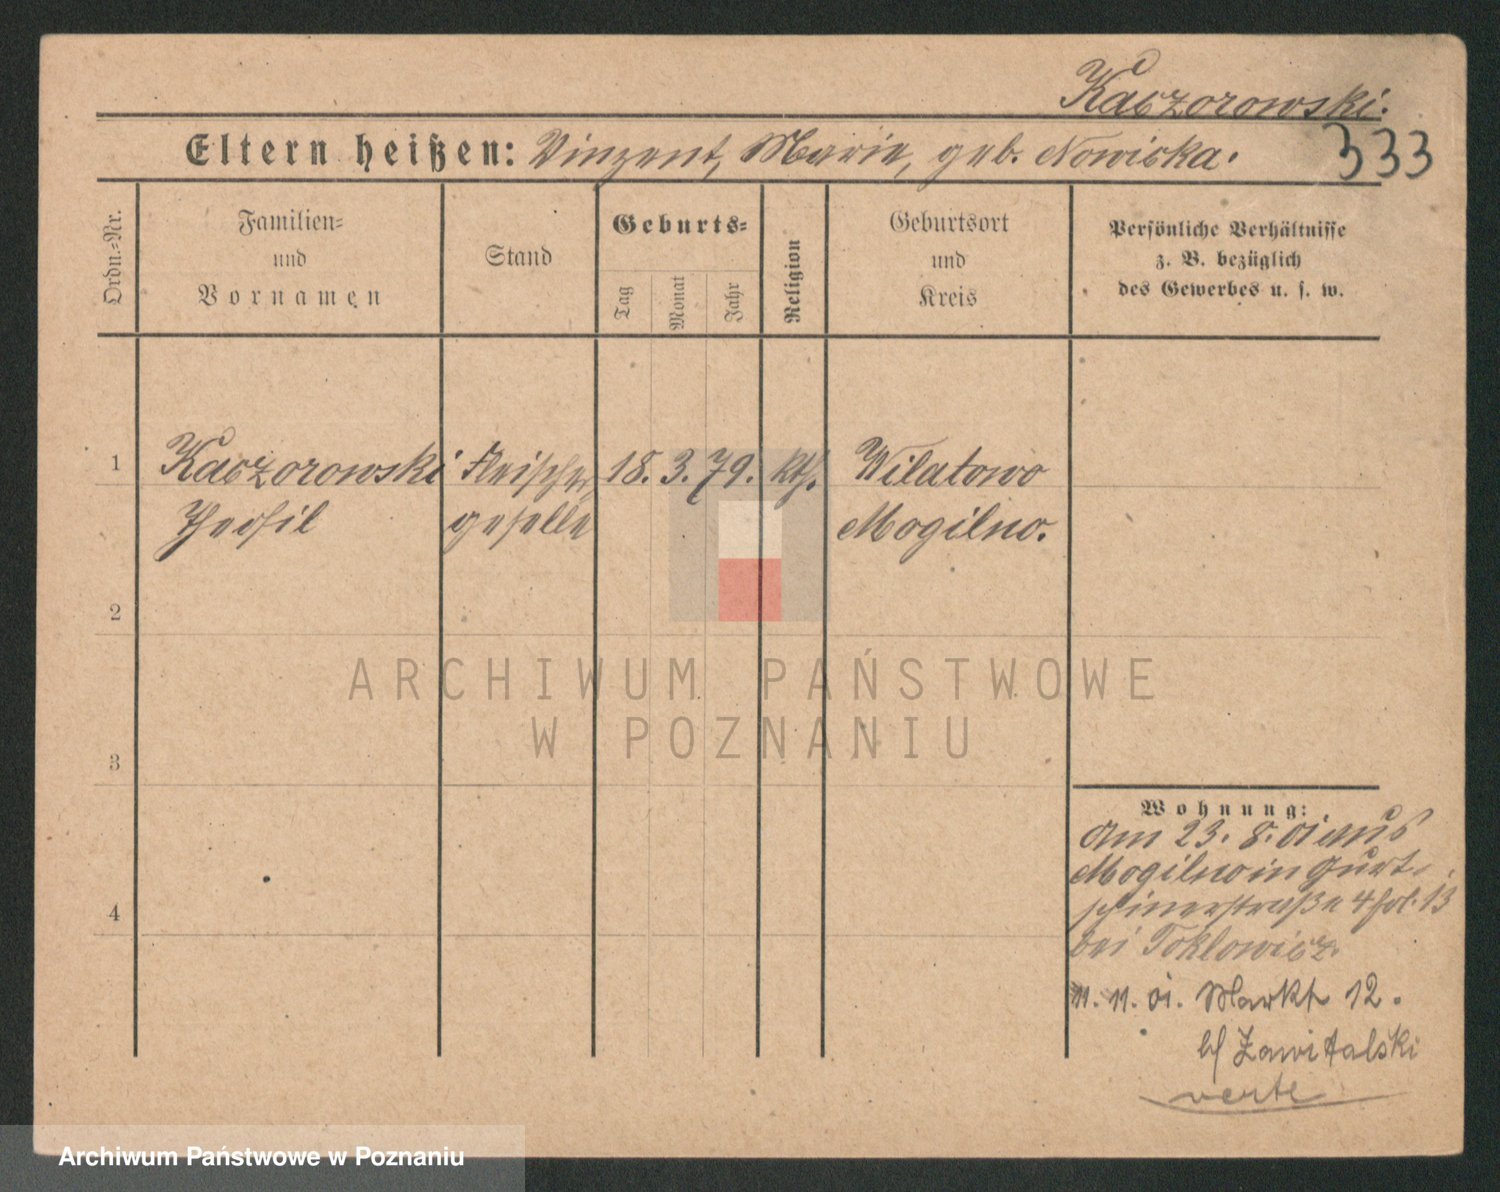 Kaczorowski.
Eltern heißen: Vinzent, Marie, geb. Nowicka.
333
Ordn.=Nr.
Familien=
und
Vornamen
Stand
Geburts=
Tag
Monat
Jahr
Religion
Geburtsort
und
Kreis
Persönliche Verhältnisse
z. B. bezüglich
des Gewerbes u. s. w.
1
Kaczorowski Fleischer 18. 3. 79. kth. Wilatowo
Theofil geselle Mogilno.
2
3
4
ARCHIWUM PAŃSTWOWE
W POZNANIU
Wohnung:
Am 23. 8. 01 aus
Mogilno in Gurt
schinerstraße 4 Hol. 13
bei
11. 11. 01. Markt 12.
b/ Zawitalski
verte
Archiwum Państwowe w Poznaniu